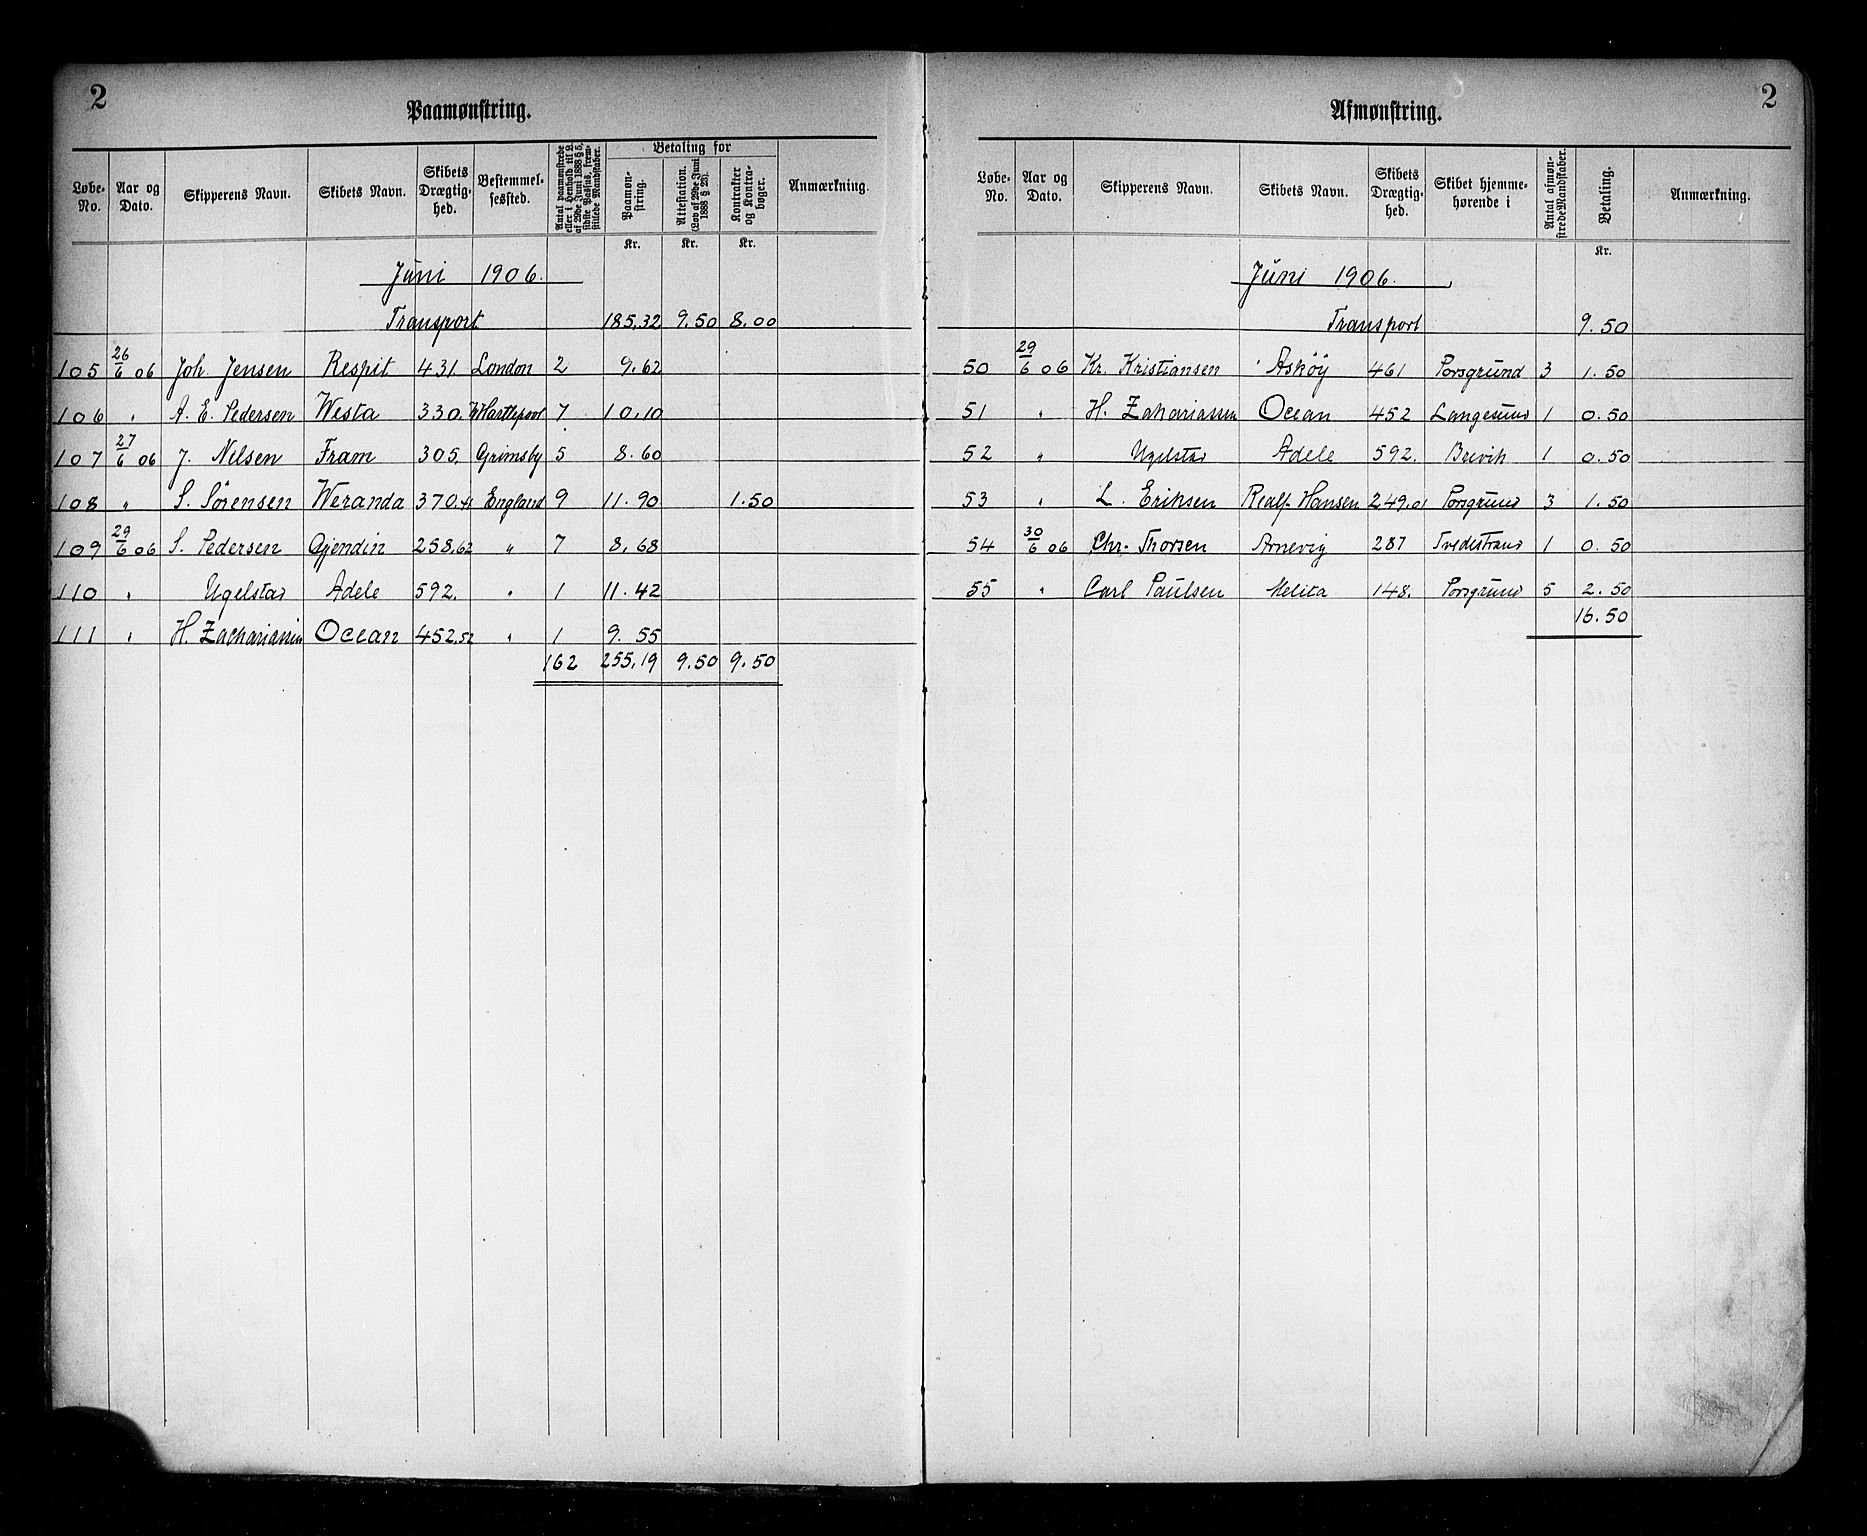 2
Paamønstring.
Løbe-No. | Aar og Dato. | Skipperens Navn. | Skibets Navn. | Skibets Drægtig-hed. | Bestemmel-sessted. | Antal paamønstrede eller i Henhold til L. af 29de Juni 1888 § 5, sidste Passus, frem-stillede Mandskaber. | Betaling for | Paamøn-string. Kr. | Attestation. (Lov af 29de Juni 1888 § 23). Kr. | Kontrakter og Kontra-bøger. Kr. | Anmærkning.
Juni 1906.
Transport 185,32 9.50 8.00
105 26/6 06 Joh. Jensen Respit 431 London 2 9.62
106 " A. E. Pedersen Westa 330. W Hartlepool 7 10,10
107 27/6 06 J. Nilsen Fram 305. Grimsby 5 8.60
108 " S. Sörensen Weranda 370.41 England 9 11.90 1.50
109 29/6 06 S. Pedersen Gjendin 258,62 " 7 8,68
110 " Ugelstad Adele 592. " 1 11.42
111 " H. Zachariassen Ocean 452,52 " 1 9.55
162 255,19 9.50 9.50
2
Afmønstring.
Løbe-No. | Aar og Dato. | Skipperens Navn. | Skibets Navn. | Skibets Drægtig-hed. | Skibet hjemme-hørende i | Antal afmøn-strede Mandskaber. | Betaling. Kr. | Anmærkning.
Juni 1906.
Transport 9.50
50 29/6 06 Kr. Kristiansen Asköy 461 Porsgrund 3 1.50
51 " H. Zakariassen Ocean 452 Langesund 1 0.50
52 " Ugelstad Adele 592. Brevik 1 0.50
53 " L. Eriksen Realf Hansen 249.01 Porsgrund 3 1.50
54 30/6 06 Chr. Thorsen Arnevig 287 Tvedestrand 1 0.50
55 " Carl Paulsen Melita 148. Porsgrund 5 2.50
16.50